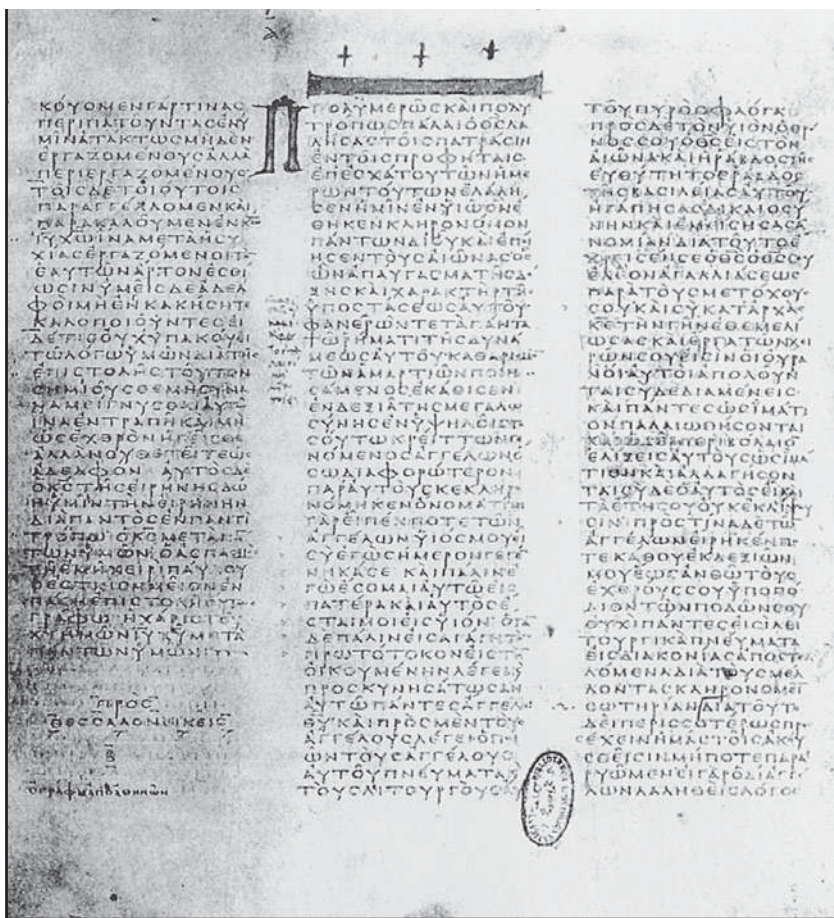 ΚΟΥΟΜΕΝΓΑΡΤΙΝΑϹ
ΠΕΡΙΠΑΤΟΥΝΤΑϹΕΝΥ
ΜΙΝΑΤΑΚΤΩϹΜΗΔΕΝ
ΕΡΓΑΖΟΜΕΝΟΥϹΑΛΛΑ
ΠΕΡΙΕΡΓΑΖΟΜΕΝΟΥϹ
ΤΟΙϹΔΕΤΟΙΟΥΤΟΙϹ
ΠΑΡΑΓΓΕΛΛΟΜΕΝΚΑΙ
ΠΑΡΑΚΑΛΟΥΜΕΝΕΝΚΩ
ΙΥΧΩΙΝΑΜΕΤΑΗϹΥ
ΧΙΑϹΕΡΓΑΖΟΜΕΝΟΙΤΟ
ΕΑΥΤΩΝΑΡΤΟΝΕϹΘΙ
ΩϹΙΝΥΜΕΙϹΔΕΑΔΕΛ
ΦΟΙΜΗΕΝΚΑΚΗϹΗΤΕ
ΚΑΛΟΠΟΙΟΥΝΤΕϹΕΙ
ΔΕΤΙϹΟΥΧΥΠΑΚΟΥΕΙ
ΤΩΛΟΓΩΥΜΩΝΔΙΑΤΗϹ
ΕΠΙϹΤΟΛΗϹΤΟΥΤΟΝ
ϹΗΜΙΟΥϹΘΕΜΗϹΥΝΑ
ΝΑΜΕΙΓΝΥϹΘΑΙΑΥΤΩ
ΙΝΑΕΝΤΡΑΠΗΚΑΙΜΗ
ΩϹΕΧΘΡΟΝΗΓΕΙϹΘΕ
ΑΛΛΑΝΟΥΘΕΤΕΙΤΕΩϹ
ΑΔΕΛΦΟΝ ΑΥΤΟϹΔΕ
ΟΚϹΤΗϹΕΙΡΗΝΗϹΔΩ
ΗΥΜΙΝΤΗΝΕΙΡΗΝΗΝ
ΔΙΑΠΑΝΤΟϹΕΝΠΑΝΤΙ
ΤΡΟΠΩΟΚϹΜΕΤΑΠΑΝ
ΤΩΝΥΜΩΝΟΑϹΠΑϹΜΟϹ
ΤΗΕΜΗΧΕΙΡΙΠΑΥΛΟΥ
ΟΕϹΤΙΝϹΗΜΕΙΟΝΕΝ
ΠΑϹΗΕΠΙϹΤΟΛΗΟΥΤΩϹ
ΓΡΑΦΩΗΧΑΡΙϹΤΟΥ
ΚΥΗΜΩΝΙΥΧΥΜΕΤΑ
ΠΑΝΤΩΝΥΜΩΝ
ΠΡΟϹ
ΘΕϹϹΑΛΟΝΙΚΕΙϹ
Β
ΕΓΡΑΦΗΑΠΟΑΘΗΝΩΝ
ΠΟΛΥΜΕΡΩϹΚΑΙΠΟΛΥ
ΤΡΟΠΩϹΠΑΛΑΙΟΘϹΛΑ
ΛΗϹΑϹΤΟΙϹΠΑΤΡΑϹΙΝ
ΕΝΤΟΙϹΠΡΟΦΗΤΑΙϹ
ΕΠΕϹΧΑΤΟΥΤΩΝΗΜΕ
ΡΩΝΤΟΥΤΩΝΕΛΑΛΗ
ϹΕΝΗΜΙΝΕΝΥΙΩΟΝΕ
ΘΗΚΕΝΚΛΗΡΟΝΟΜΟΝ
ΠΑΝΤΩΝΔΙΟΥΚΑΙΕΠΟΙ
ΗϹΕΝΤΟΥϹΑΙΩΝΑϹΟϹ
ΩΝΑΠΑΥΓΑϹΜΑΤΗϹΔΟ
ΞΗϹΚΑΙΧΑΡΑΚΤΗΡΤΗϹ
ΥΠΟϹΤΑϹΕΩϹΑΥΤΟΥ
ΦΑΝΕΡΩΝΤΕΤΑΠΑΝΤΑ
ΤΩΡΗΜΑΤΙΤΗϹΔΥΝΑ
ΜΕΩϹΑΥΤΟΥΚΑΘΑΡΙϹΜΟΝ
ΤΩΝΑΜΑΡΤΙΩΝΠΟΙΗ
ϹΑΜΕΝΟϹΕΚΑΘΙϹΕΝ
ΕΝΔΕΞΙΑΤΗϹΜΕΓΑΛΩ
ϹΥΝΗϹΕΝΥΨΗΛΟΙϹΤΟ
ϹΟΥΤΩΚΡΕΙΤΤΩΝΓΕ
ΝΟΜΕΝΟϹΑΓΓΕΛΩΝΟ
ϹΩΔΙΑΦΟΡΩΤΕΡΟΝ
ΠΑΡΑΥΤΟΥϹΚΕΚΛΗΡΟ
ΝΟΜΗΚΕΝΟΝΟΜΑΤΙΝΙ
ΓΑΡΕΙΠΕΝΠΟΤΕΤΩΝ
ΑΓΓΕΛΩΝΥΙΟϹΜΟΥΕΙ
ϹΥΕΓΩϹΗΜΕΡΟΝΓΕΓΕ
ΝΗΚΑϹΕ ΚΑΙΠΑΛΙΝΕ
ΓΩΕϹΟΜΑΙΑΥΤΩΕΙϹ
ΠΑΤΕΡΑΚΑΙΑΥΤΟϹΕ
ϹΤΑΙΜΟΙΕΙϹΥΙΟΝ ΟΤΑΝ
ΔΕΠΑΛΙΝΕΙϹΑΓΑΓΗΤΟΝ
ΠΡΩΤΟΤΟΚΟΝΕΙϹΤΗΝ
ΟΙΚΟΥΜΕΝΗΝΛΕΓΕΙΚΑΙ
ΠΡΟϹΚΥΝΗϹΑΤΩϹΑΝ
ΑΥΤΩΠΑΝΤΕϹΑΓΓΕΛΟΙ
ΘΥΚΑΙΠΡΟϹΜΕΝΤΟΥϹ
ΑΓΓΕΛΟΥϹΛΕΓΕΙΟΠΟΙ
ΩΝΤΟΥϹΑΓΓΕΛΟΥϹ
ΑΥΤΟΥΠΝΕΥΜΑΤΑΚΑΙ
ΤΟΥϹΛΙΤΟΥΡΓΟΥϹΑΥ
ΤΟΥΠΥΡΟϹΦΛΟΓΑ
ΠΡΟϹΔΕΤΟΝΥΙΟΝΟΘΡΟ
ΝΟϹϹΟΥΟΘϹΕΙϹΤΟΝ
ΑΙΩΝΑΚΑΙΗΡΑΒΔΟϹΤΗϹ
ΕΥΘΥΤΗΤΟϹΡΑΒΔΟϹ
ΤΗϹΒΑϹΙΛΕΙΑϹΑΥΤΟΥ
ΗΓΑΠΗϹΑϹΔΙΚΑΙΟϹΥ
ΝΗΝΚΑΙΕΜΙϹΗϹΑϹΑ
ΝΟΜΙΑΝΔΙΑΤΟΥΤΟΕ
ΧΡΙϹΕΝϹΕΟΘϹΟΘϹϹΟΥ
ΕΛΕΟΝΑΓΑΛΛΙΑϹΕΩϹ
ΠΑΡΑΤΟΥϹΜΕΤΟΧΟΥϹ
ϹΟΥΚΑΙϹΥΚΑΤΑΡΧΑϹ
ΚΕΤΗΝΓΗΝΕΘΕΜΕΛΙ
ΩϹΑϹΚΑΙΕΡΓΑΤΩΝΧΕΙ
ΡΩΝϹΟΥΕΙϹΙΝΟΙΟΥΡΑ
ΝΟΙΑΥΤΟΙΑΠΟΛΟΥΝ
ΤΑΙϹΥΔΕΔΙΑΜΕΝΕΙϹ
ΚΑΙΠΑΝΤΕϹΩϹΙΜΑΤΙ
ΟΝΠΑΛΑΙΩΘΗϹΟΝΤΑΙ
ΚΑΙΩϹΕΙΠΕΡΙΒΟΛΑΙΟΝ
ΕΛΙΞΕΙϹΑΥΤΟΥϹΩϹΙΜΑ
ΤΙΟΝΚΑΙΑΛΛΑΓΗϹΟΝ
ΤΑΙϹΥΔΕΟΑΥΤΟϹΕΙΚΑΙ
ΤΑΕΤΗϹΟΥΟΥΚΕΚΛΙΨΟΥ
ϹΙΝ ΠΡΟϹΤΙΝΑΔΕΤΩΝ
ΑΓΓΕΛΩΝΕΙΡΗΚΕΝΠΟ
ΤΕΚΑΘΟΥΕΚΔΕΞΙΩΝ
ΜΟΥΕΩϹΑΝΘΩΤΟΥϹ
ΕΧΘΡΟΥϹϹΟΥΥΠΟΠΟ
ΔΙΟΝΤΩΝΠΟΔΩΝϹΟΥ
ΟΥΧΙΠΑΝΤΕϹΕΙϹΙΛΕΙ
ΤΟΥΡΓΙΚΑΠΝΕΥΜΑΤΑ
ΕΙϹΔΙΑΚΟΝΙΑϹΑΠΟϹΤΕΛ
ΛΟΜΕΝΑΔΙΑΤΟΥϹΜΕΛ
ΛΟΝΤΑϹΚΛΗΡΟΝΟΜΕΙΝ
ϹΩΤΗΡΙΑΝΔΙΑΤΟΥΤΟ
ΔΕΙΠΕΡΙϹϹΟΤΕΡΩϹΠΡΟϹ
ΕΧΕΙΝΗΜΑϹΤΟΙϹΑΚΟΥ
ϹΘΕΙϹΙΝΜΗΠΟΤΕΠΑΡΑ
ΡΥΩΜΕΝΕΙΓΑΡΟΔΙΑΓΓΕ
ΛΩΝΛΑΛΗΘΕΙϹΛΟΓΟϹ